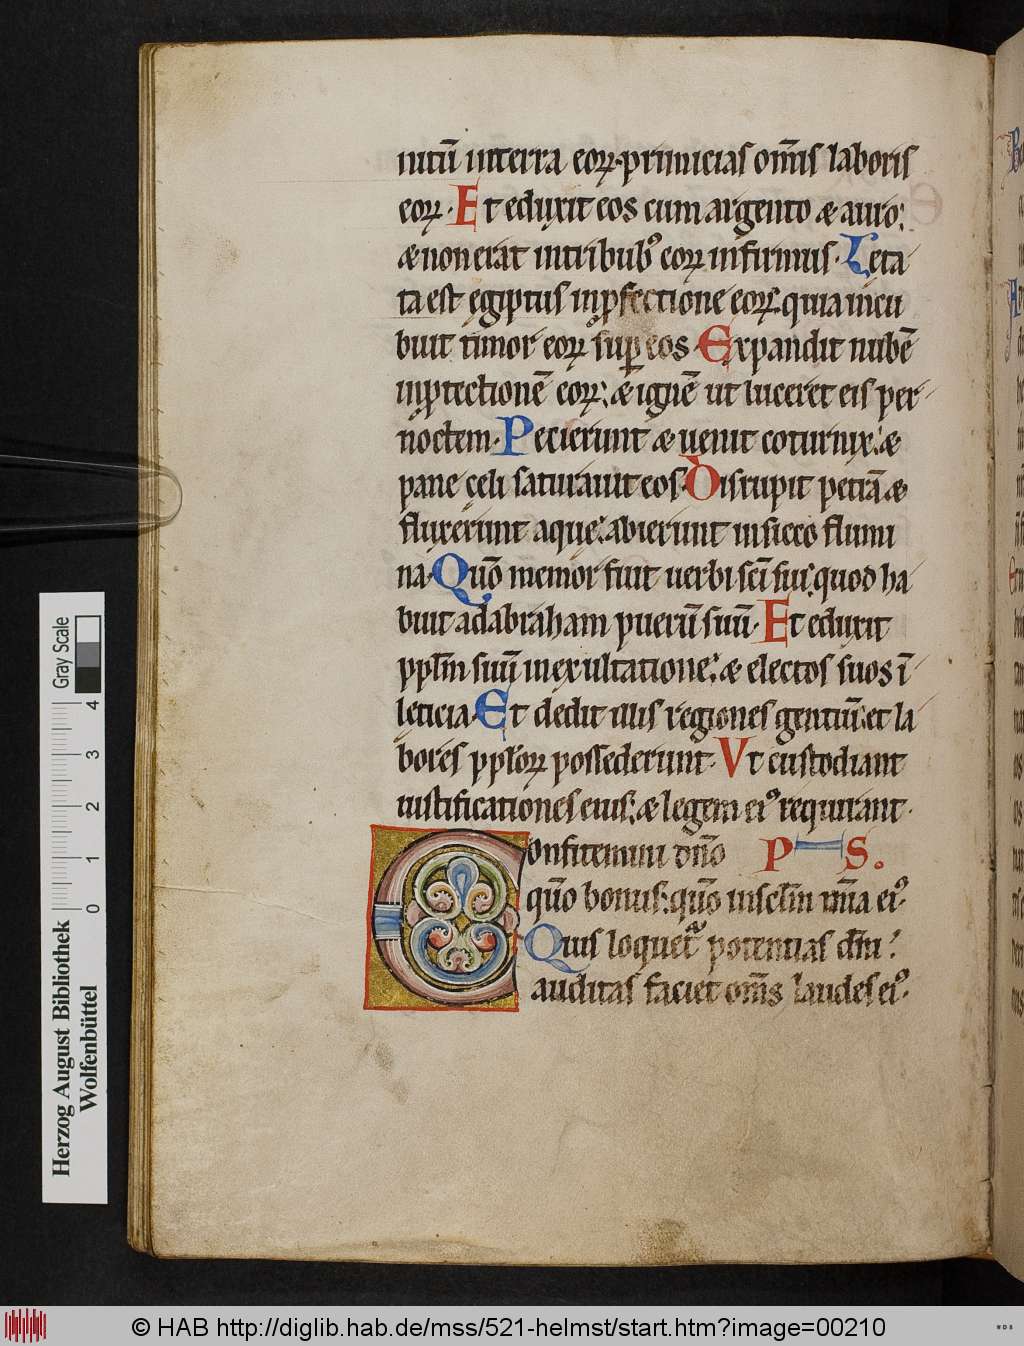 nitū in terra eoꝝ· primicias om̄is laboris
eoꝝ· Et eduxit eos cum argento & auro:
& non erat in tribub⁹ eoꝝ infirmus· Leta
ta est egiptus in ꝓfectione eoꝝ: quia incu
buit timor eoꝝ sup eos· Expandit nubē
in ꝓtectionē eoꝝ: & ignē ut luceret eis per
noctem· Pecierunt & uenit coturnix: &
pane celi saturauit eos· Disrupit petrā &
fluxerunt aque: abierunt in sicco flumi
na· Quō memor fuit uerbi sc̄i sui: quod ha
buit ad abraham puerū suū· Et eduxit
ppl̄m suū in exultatione: & electos suos ī
leticia· Et dedit illis regiones gentiū: et la
bores ppl̄oꝝ possederunt· Vt custodiant
iustificationes eius: & legem ei⁹ requirant·
Confitemini dn̄o PS.
quō bonus: quō in sc̄lm mīa ei⁹·
Quis loquet᷑ potentias dn̄i:
auditas faciet om̄s laudes ei⁹·
Gray Scale
0 1 2 3 4
Herzog August Bibliothek
Wolfenbüttel
© HAB http://diglib.hab.de/mss/521-helmst/start.htm?image=00210